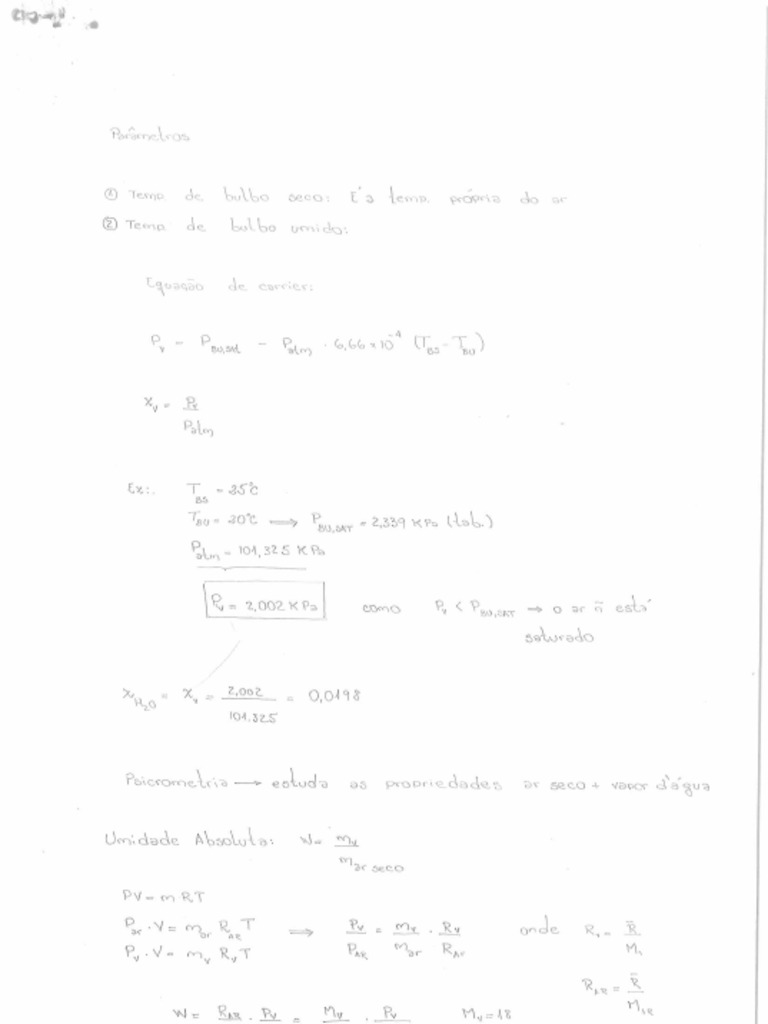 Parâmetros
① Temp de bulbo seco: É a temp. própria do ar
② Temp de bulbo umido:
Equação de carrier:
P_v = P_BU,SAT - P_atm · 6,66×10^-4 (T_BS - T_BU)
x_v = P_v / P_atm
Ex:. T_BS = 25°C
T_BU = 20°C ⟹ P_BU,SAT = 2,339 KPa (tab.)
P_atm = 101,325 KPa
P_v = 2,002 KPa como P_v < P_BU,SAT → o ar ñ está
saturado
x_H2O = x_v = 2,002 / 101.325 = 0,0198
Psicrometria → estuda as propriedades ar seco + vapor d'água
Umidade Absoluta: W = m_v / m_ar seco
PV = m R T
P_ar · V = m_ar R_AR T ⟹ P_v / P_AR = m_v / m_ar · R_v / R_AR onde R_v = R̄ / M_v
P_v · V = m_v R_v T
R_AR = R̄ / M_AR
W = R_AR · P_v = M_v · P_v M_v = 18